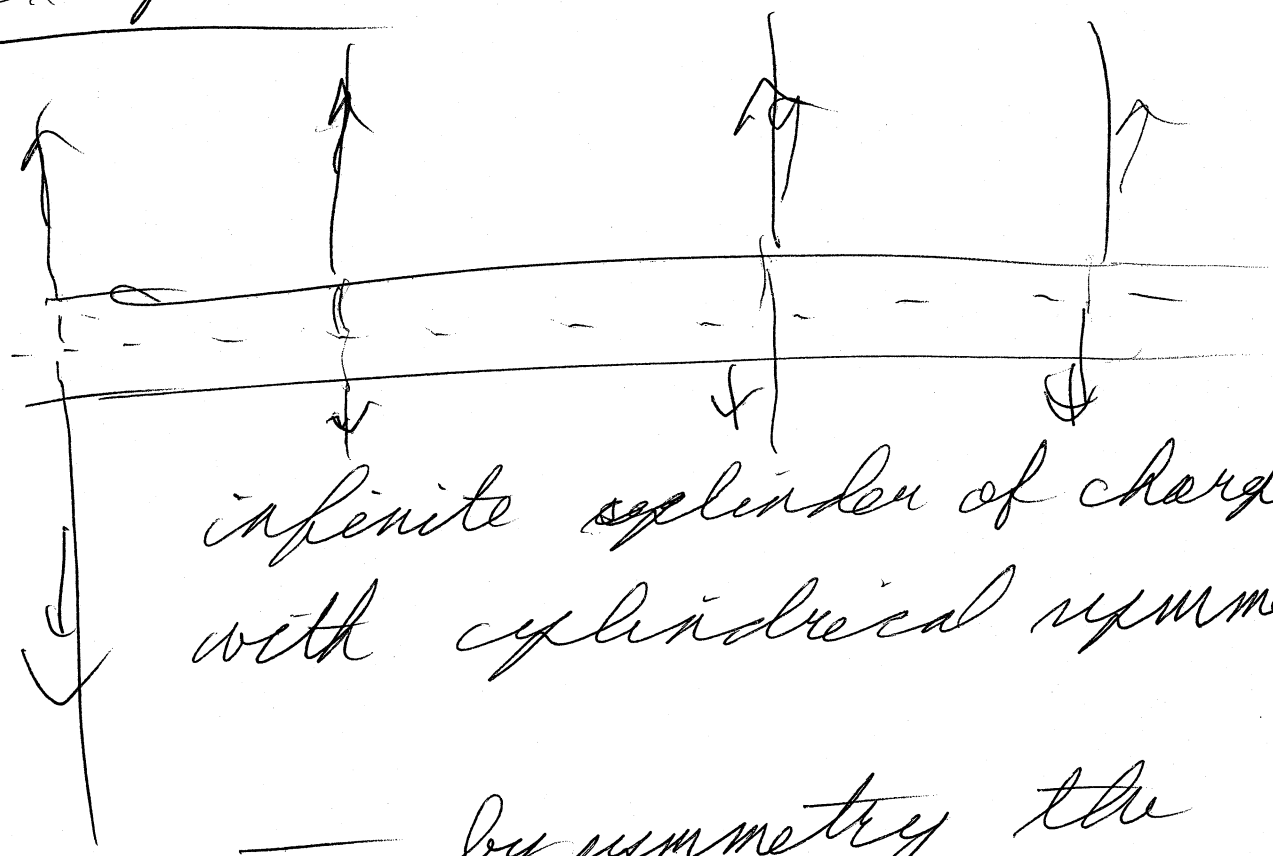 infinite cylinder of charg
with cylindrical symm
— by symmetry the